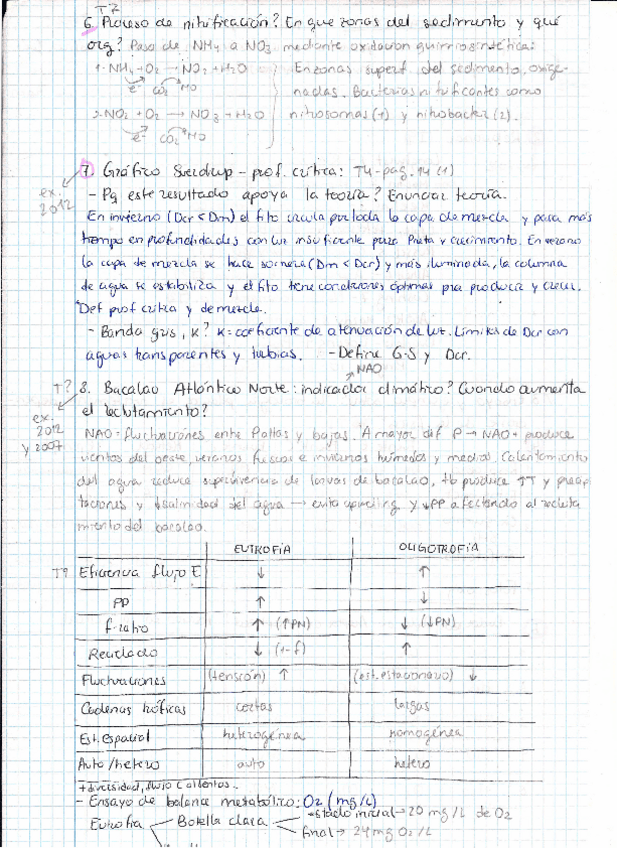 T7
6. Proceso de nitrificación? En que zonas del sedimento y qué
org? Paso de NH4 a NO2 mediante oxidación quimiosintética:
1. NH4 + O2 → NO2 + H2O
e- CO2 MO
2. NO2 + O2 → NO3 + H2O
e- CO2 MO
En zonas superf. del sedimento, oxige-
nadas. Bacterias nitrificantes como
nitrosomas (1) y nitrobacter (2).
7. Gráfico Sverdrup - prof. crítica: T4-pag. 14 (1)
ex. 2012
- Pq este resultado apoya la teoría? Enunciar teoría.
En invierno (Dcr < Dm) el fito circula por toda la capa de mezcla y pasa más
tiempo en profundidades con luz insuficiente para Pneta y crecimiento. En verano
la capa de mezcla se hace somera (Dm < Dcr) y más iluminada, la columna
de agua se estabiliza y el fito tiene condiciones óptimas pra producir y crecer.
Def prof crítica y de mezcla.
- Banda gris, K? K = coeficiente de atenuación de luz. Límites de Dcr con
aguas transparentes y turbias. - Define G-S y Dcr.
NAO
T? 8. Bacalao Atlántico Norte: indicador climático? Cuando aumenta
el reclutamiento?
ex. 2012 y 2007
NAO = fluctuaciones entre Paltas y bajas. A mayor dif P → NAO+ produce
vientos del oeste, veranos frescos e inviernos húmedos y Calentamiento
del agua reduce supervivencia de larvas de bacalao, tb produce ↑T y precip
taciones y ↓salinidad del agua → evita upweling y ↓PP afectando al recluta
miento del bacalao.
EUTROFIA OLIGOTROFIA
T9 Eficiencia flujo E ↓ ↑
PP ↑ ↓
f-ratio ↑ (↑PN) ↓ (↓PN)
Reciclado ↓ (1-f) ↑
Fluctuaciones (tensión) ↑ (est. estacionario) ↓
Cadenas tróficas cortas largas
Est. Espacial heterogénea homogénea
Auto/hetero auto hetero
+ diversidad, flujo C
- Ensayo de balance metabólico: O2 (mg/L)
Eutrofia Botella clara stado inicial → 20 mg/L de O2
final → 24 mg O2/L